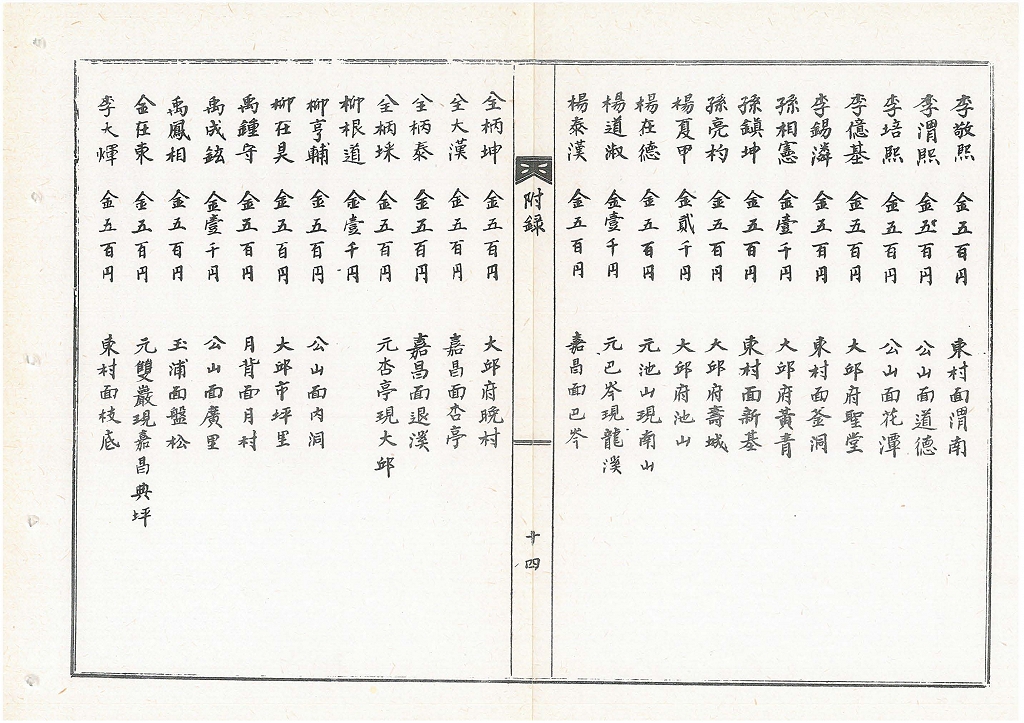 李敬熙 金五百円 東村面渭南
李渭熙 金五百円 公山面道德
李培熙 金五百円 公山面花潭
李億基 金五百円 大邱府聖堂
李錫潾 金五百円 東村面釜洞
孫相憲 金壹千円 大邱府黃青
孫鎭坤 金五百円 東村面新基
孫亮杓 金五百円 大邱府壽城
楊夏甲 金貳千円 大邱府池山
楊在德 金五百円 元池山現南山
楊道淑 金壹千円 元巴岑現龍溪
楊泰漢 金五百円 嘉昌面巴岑
附録
十四
全柄坤 金五百円 大邱府晩村
全大漢 金五百円 嘉昌面杏亭
全柄泰 金五百円 嘉昌面退溪
全柄埰 金五百円 元杏亭現大邱
柳根道 金壹千円
柳亨輔 金五百円 公山面內洞
柳在昊 金五百円 大邱市坪里
禹鍾守 金五百円 月背面月村
禹成鉉 金壹千円 公山面廣里
禹鳳相 金五百円 玉浦面盤松
金在東 金五百円 元雙巖現嘉昌典坪
李大煇 金五百円 東村面枝底